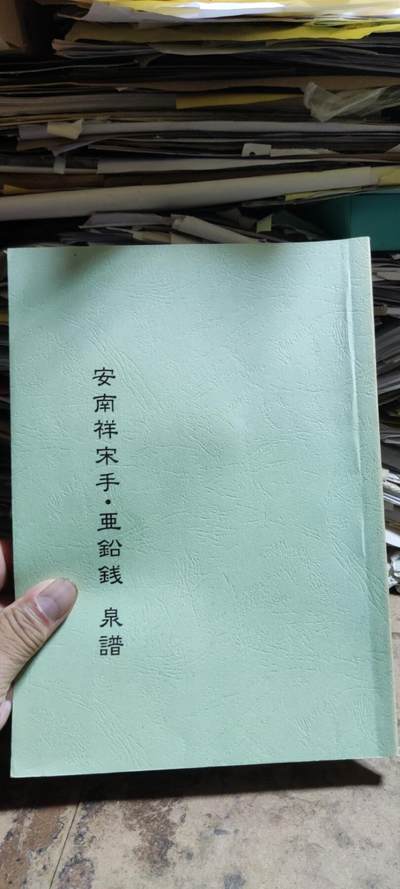 安南祥宋手・亜鉛銭 泉譜